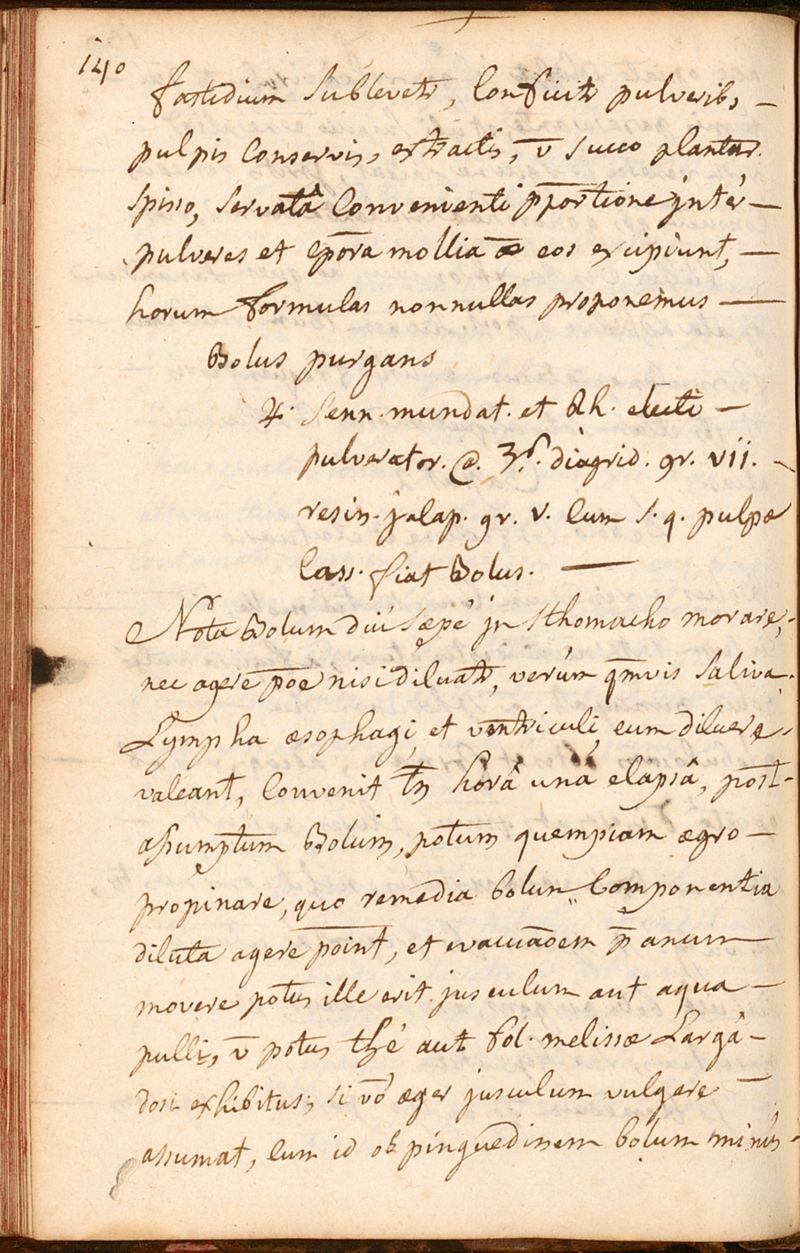 140
fastidium Sublevetr, Conficitr pulverib,
pulpis Conservis, extractis, v̄ Succo plantar.
Spisso, Servatâ Convenienti p̄portione jnter
pulveres et Cp̄ora mollia æ eos excipiunt,
horum formulas nonnullas proponemus
Bolus purgans
♃. Senn. mundat. et Rh. electi
pulverator. @. ʒß. diagrid. gr. vii.
resin. jalap. gr. v. Cum S. q. pulpæ
Cass. fiat Bolus.
Nota Bolum diù Sæpè jn Sthomacho morare,
nec agere p̄oe nisi diluatr, verùm qm̄vis Saliva
Lympha æsophagi, et ventriculi, eum diluere
valeant, Convenit tn̄ horâ unâ elapsâ, post
assumptum Bolum, potum quempiam ægro
propinare, quo remedia bolum Componentia
diluta agere point, et evacuāoem p̄ anum
movere potus ille erit jusculum aut aqua
pulli, v̄ potus thé aut fol. melissæ Largâ
dosi exhibitus; Si vō æger jusculum vulgare
assumat, Cum id ob pinguedinem bolum minùs